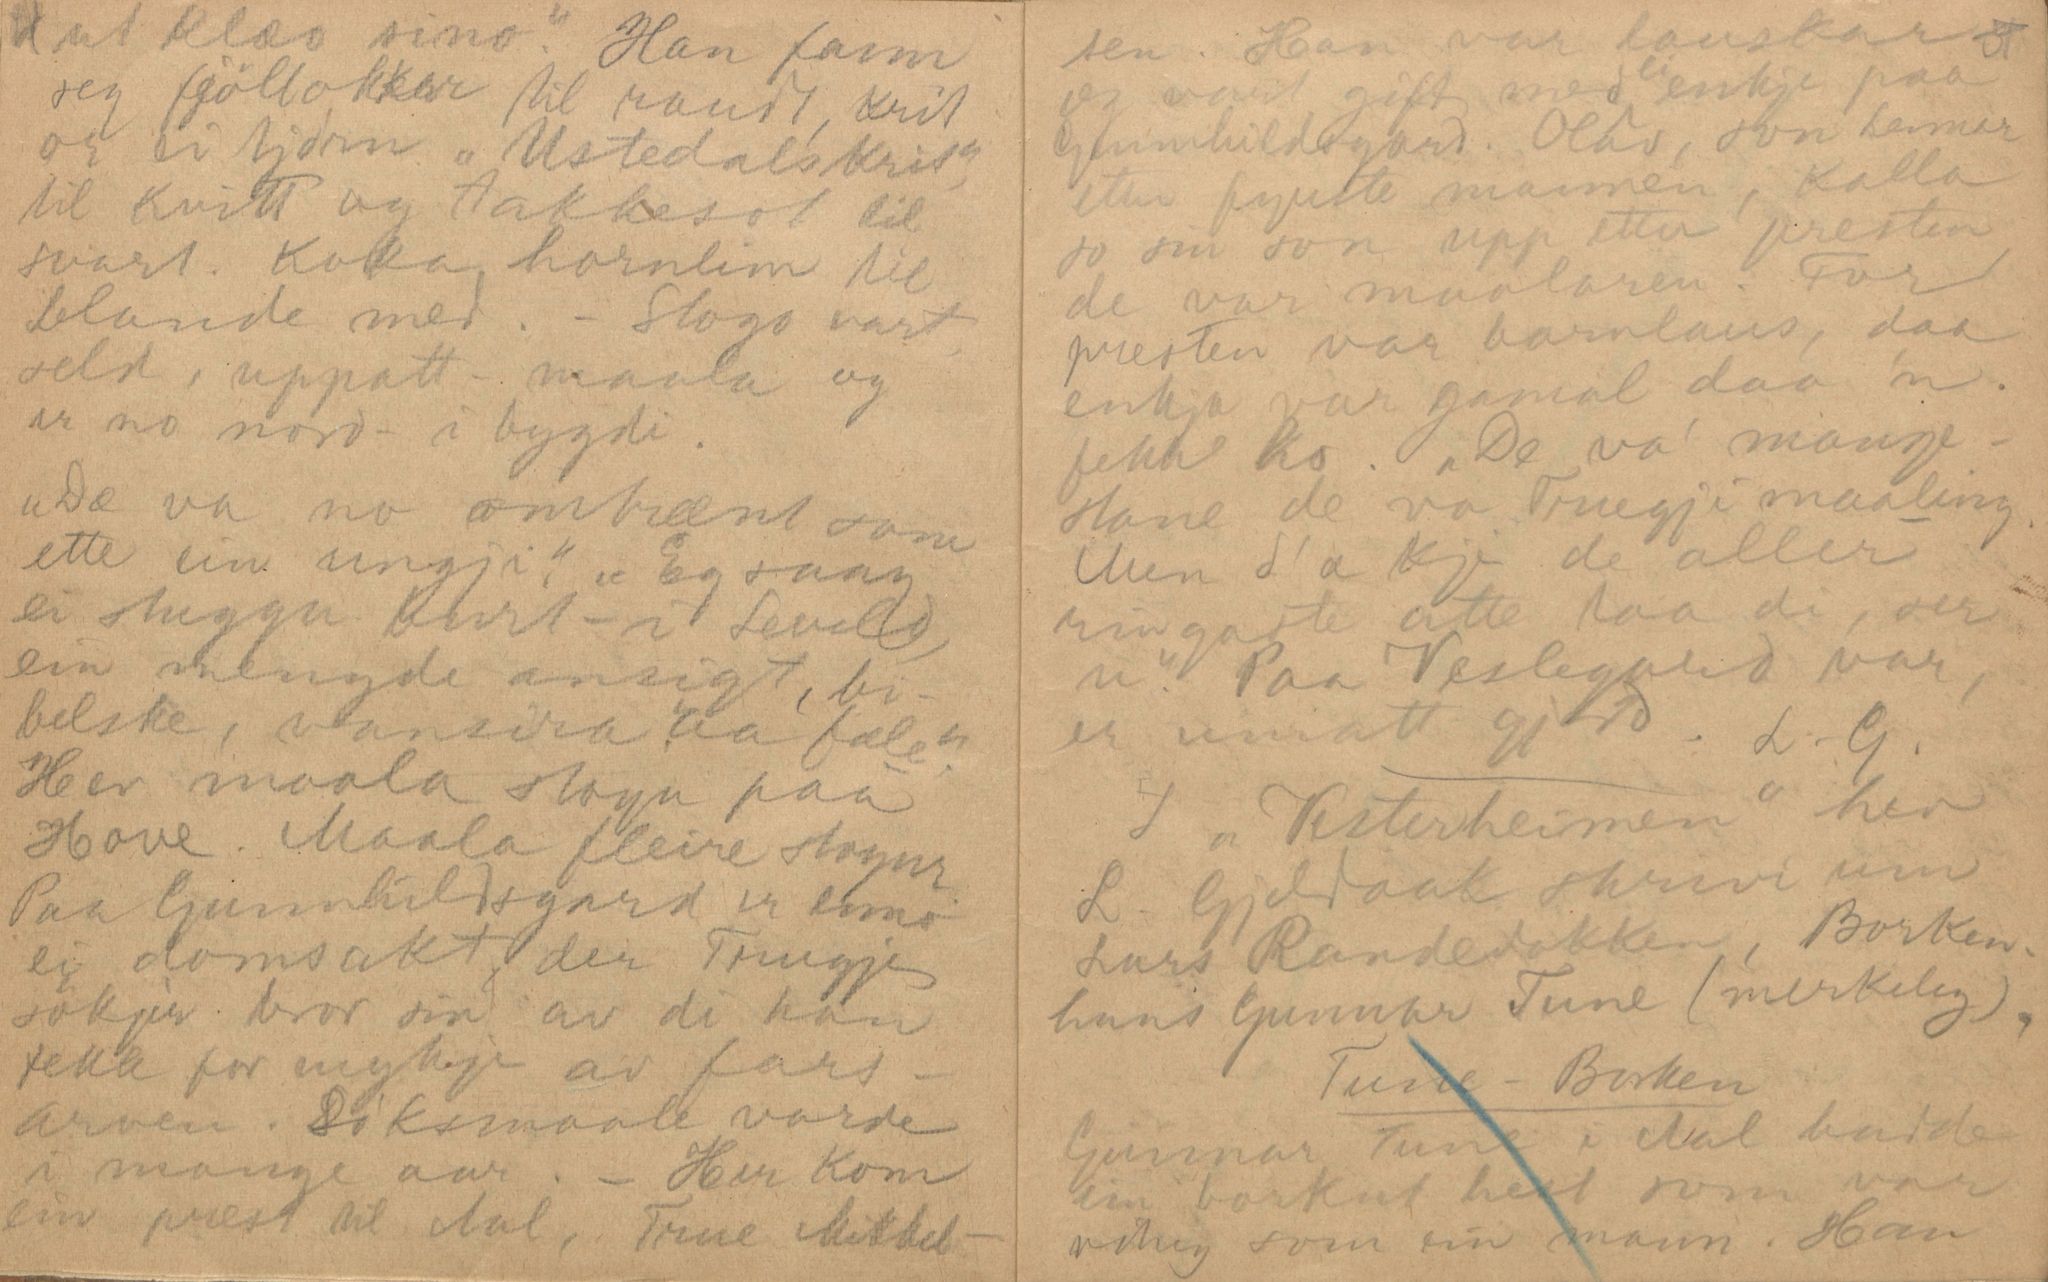 ut klæo sino". Han fann
seg fjöllokkar til raudt, krit
or ei tjørn "Ustedalskrit"
til kvitt og takkesot til
svart. Koka hornlim til
blande med. - Stogo vart
seld, uppatt-maala og
er no nord-i bygdi.
"De va no ombrænt som
ette ein ungji". "Eg saag
ei stuggu burt-i Leveld,
ein mengde ansigt, bi-
belske, vansira aa fæle".
Her maala stogu paa
Hove. Maala fleire stogur
Paa Gunnhildsgard er enno
ei domsakt, der Truegje
sökjer bror sin av di han
fekk for mykje av fars-
arven. Söksmaale varde
i mange aar. - Her kom
ein prest til Aal, True Mikkel-
sen. Han var lauskar
og vart gift med ei enkje paa
Gunnhildsgard. Olav, son hennar
etter fyrste mannen, kalla
so sin son upp etter presten
de var maalaren. For
presten var barnlaus, daa
enkja var gamal daa 'n
fekk ho. "De va' mange-
stane de va Truegji maaling.
Men d'a kje de aller
ringaste atte taa di, ser
u". Paa Veslegard var,
er umatt gjord. L. G.
I "Vesterheimen" her
L. Gjeldaak skrivi um
Lars Randedokken, Borken-
hans Gunnar Tune (merkeleg),
Tune - Borken
Gunnar Tune i Aal hadde
ein borkut hest som var
viting som ein mann. Han